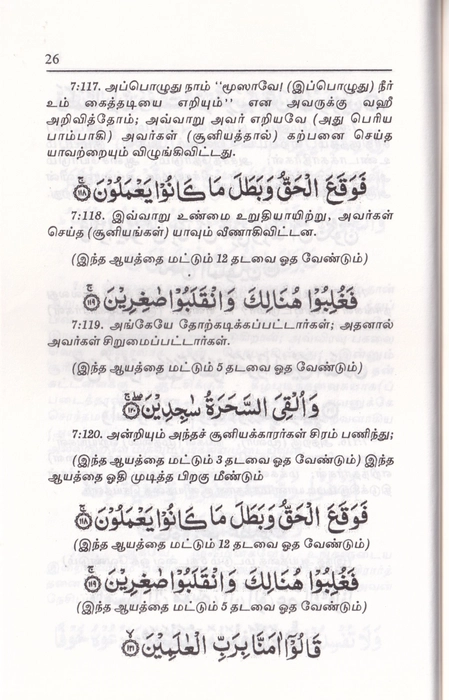 26
7:117. அப்பொழுது நாம் "மூஸாவே! (இப்பொழுது) நீர்
உம் கைத்தடியை எறியும்" என அவருக்கு வஹீ
அறிவித்தோம்; அவ்வாறு அவர் எறியவே (அது பெரிய
பாம்பாகி) அவர்கள் (சூனியத்தால்) கற்பனை செய்த
யாவற்றையும் விழுங்கிவிட்டது.
فَوَقَعَ الْحَقُّ وَبَطَلَ مَا كَانُوْا يَعْمَلُوْنَ ۚ﴿١١٨﴾
7:118. இவ்வாறு உண்மை உறுதியாயிற்று, அவர்கள்
செய்த (சூனியங்கள்) யாவும் வீணாகிவிட்டன.
(இந்த ஆயத்தை மட்டும் 12 தடவை ஓத வேண்டும்)
فَغُلِبُوْا هُنَالِكَ وَانْقَلَبُوْا صٰغِرِيْنَ ۚ﴿١١٩﴾
7:119. அங்கேயே தோற்கடிக்கப்பட்டார்கள்; அதனால்
அவர்கள் சிறுமைப்பட்டார்கள்.
(இந்த ஆயத்தை மட்டும் 5 தடவை ஓத வேண்டும்)
وَاُلْقِىَ السَّحَرَةُ سٰجِدِيْنَ ۚۖ﴿١٢٠﴾
7:120. அன்றியும் அந்தச் சூனியக்காரர்கள் சிரம் பணிந்து;
(இந்த ஆயத்தை மட்டும் 3 தடவை ஓத வேண்டும்) இந்த
ஆயத்தை ஓதி முடித்த பிறகு மீண்டும்
فَوَقَعَ الْحَقُّ وَبَطَلَ مَا كَانُوْا يَعْمَلُوْنَ ۚ﴿١١٨﴾
(இந்த ஆயத்தை மட்டும் 12 தடவை ஓத வேண்டும்)
فَغُلِبُوْا هُنَالِكَ وَانْقَلَبُوْا صٰغِرِيْنَ ۚ﴿١١٩﴾
(இந்த ஆயத்தை மட்டும் 5 தடவை ஓத வேண்டும்)
قَالُوْٓا اٰمَنَّا بِرَبِّ الْعٰلَمِيْنَ ۙ﴿١٢١﴾